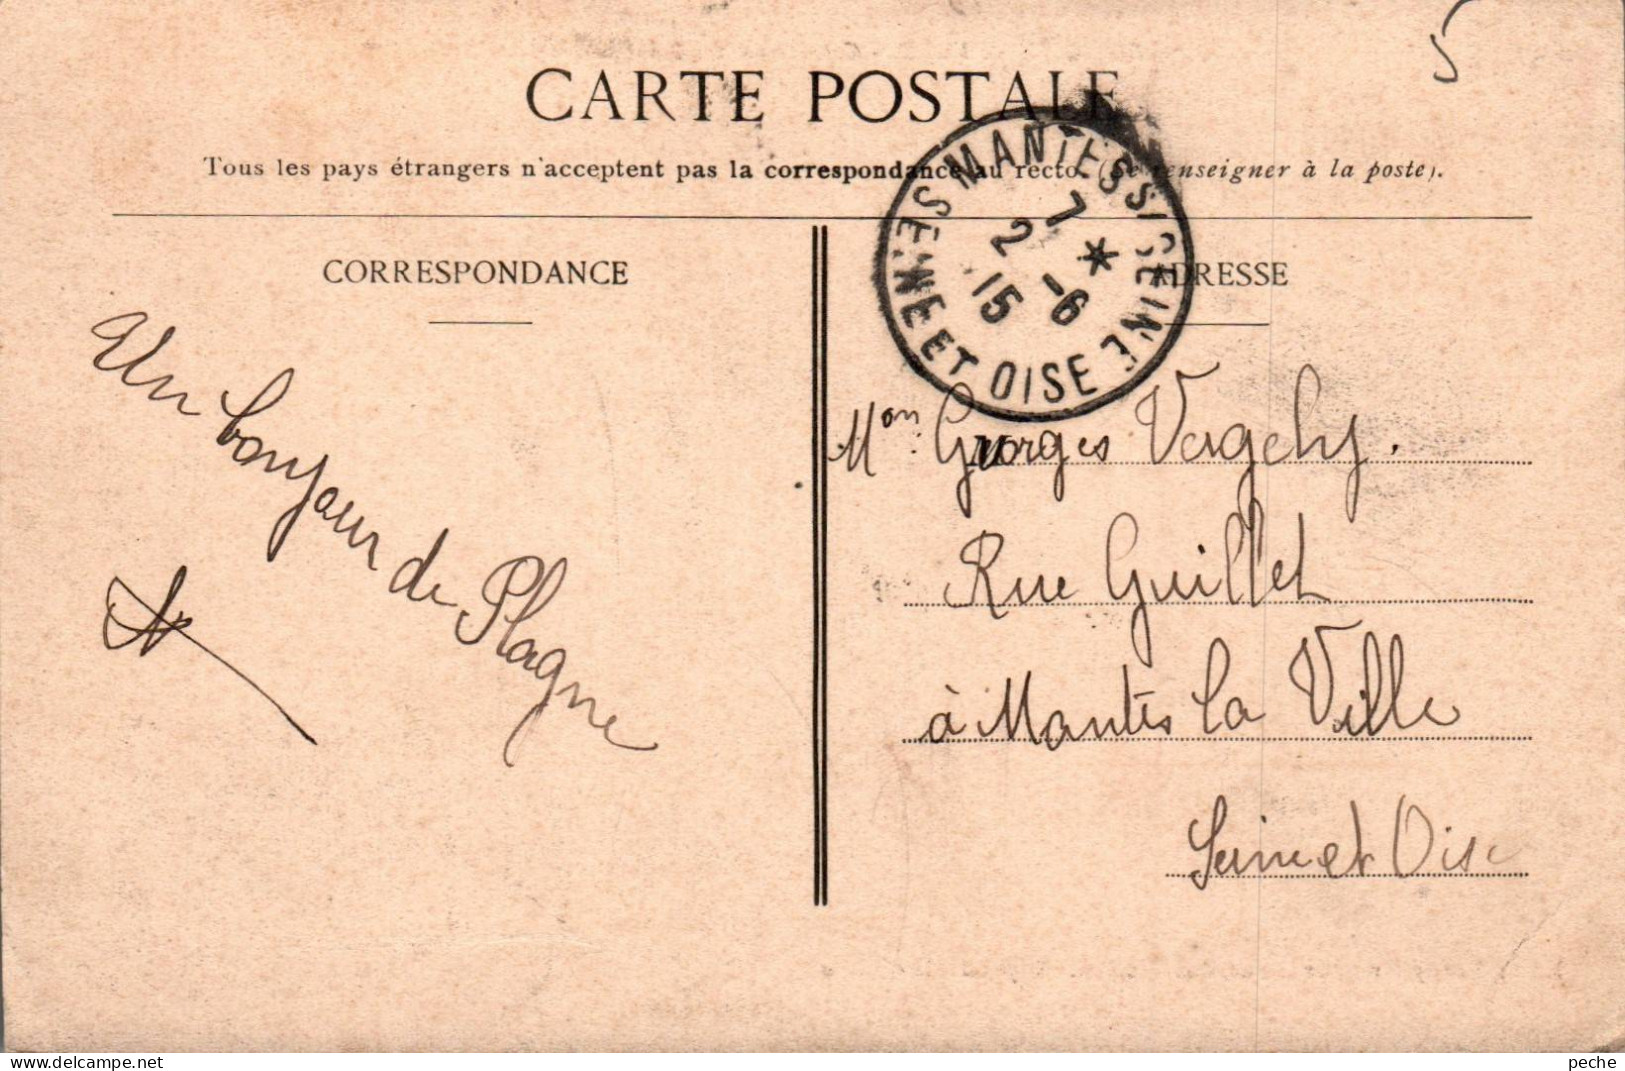 5
CARTE POSTALE
Tous les pays étrangers n'acceptent pas la correspondance au recto. (Se renseigner à la poste).
MANTES S/ SEINE
7 *
2 -6
15
SEINE ET OISE
CORRESPONDANCE
ADRESSE
Un bonjour de Plagne
Mon. Georges Vagely.
Rue Guillet
à Mantes la Ville
Seine et Oise
www.delcampe.net
peche